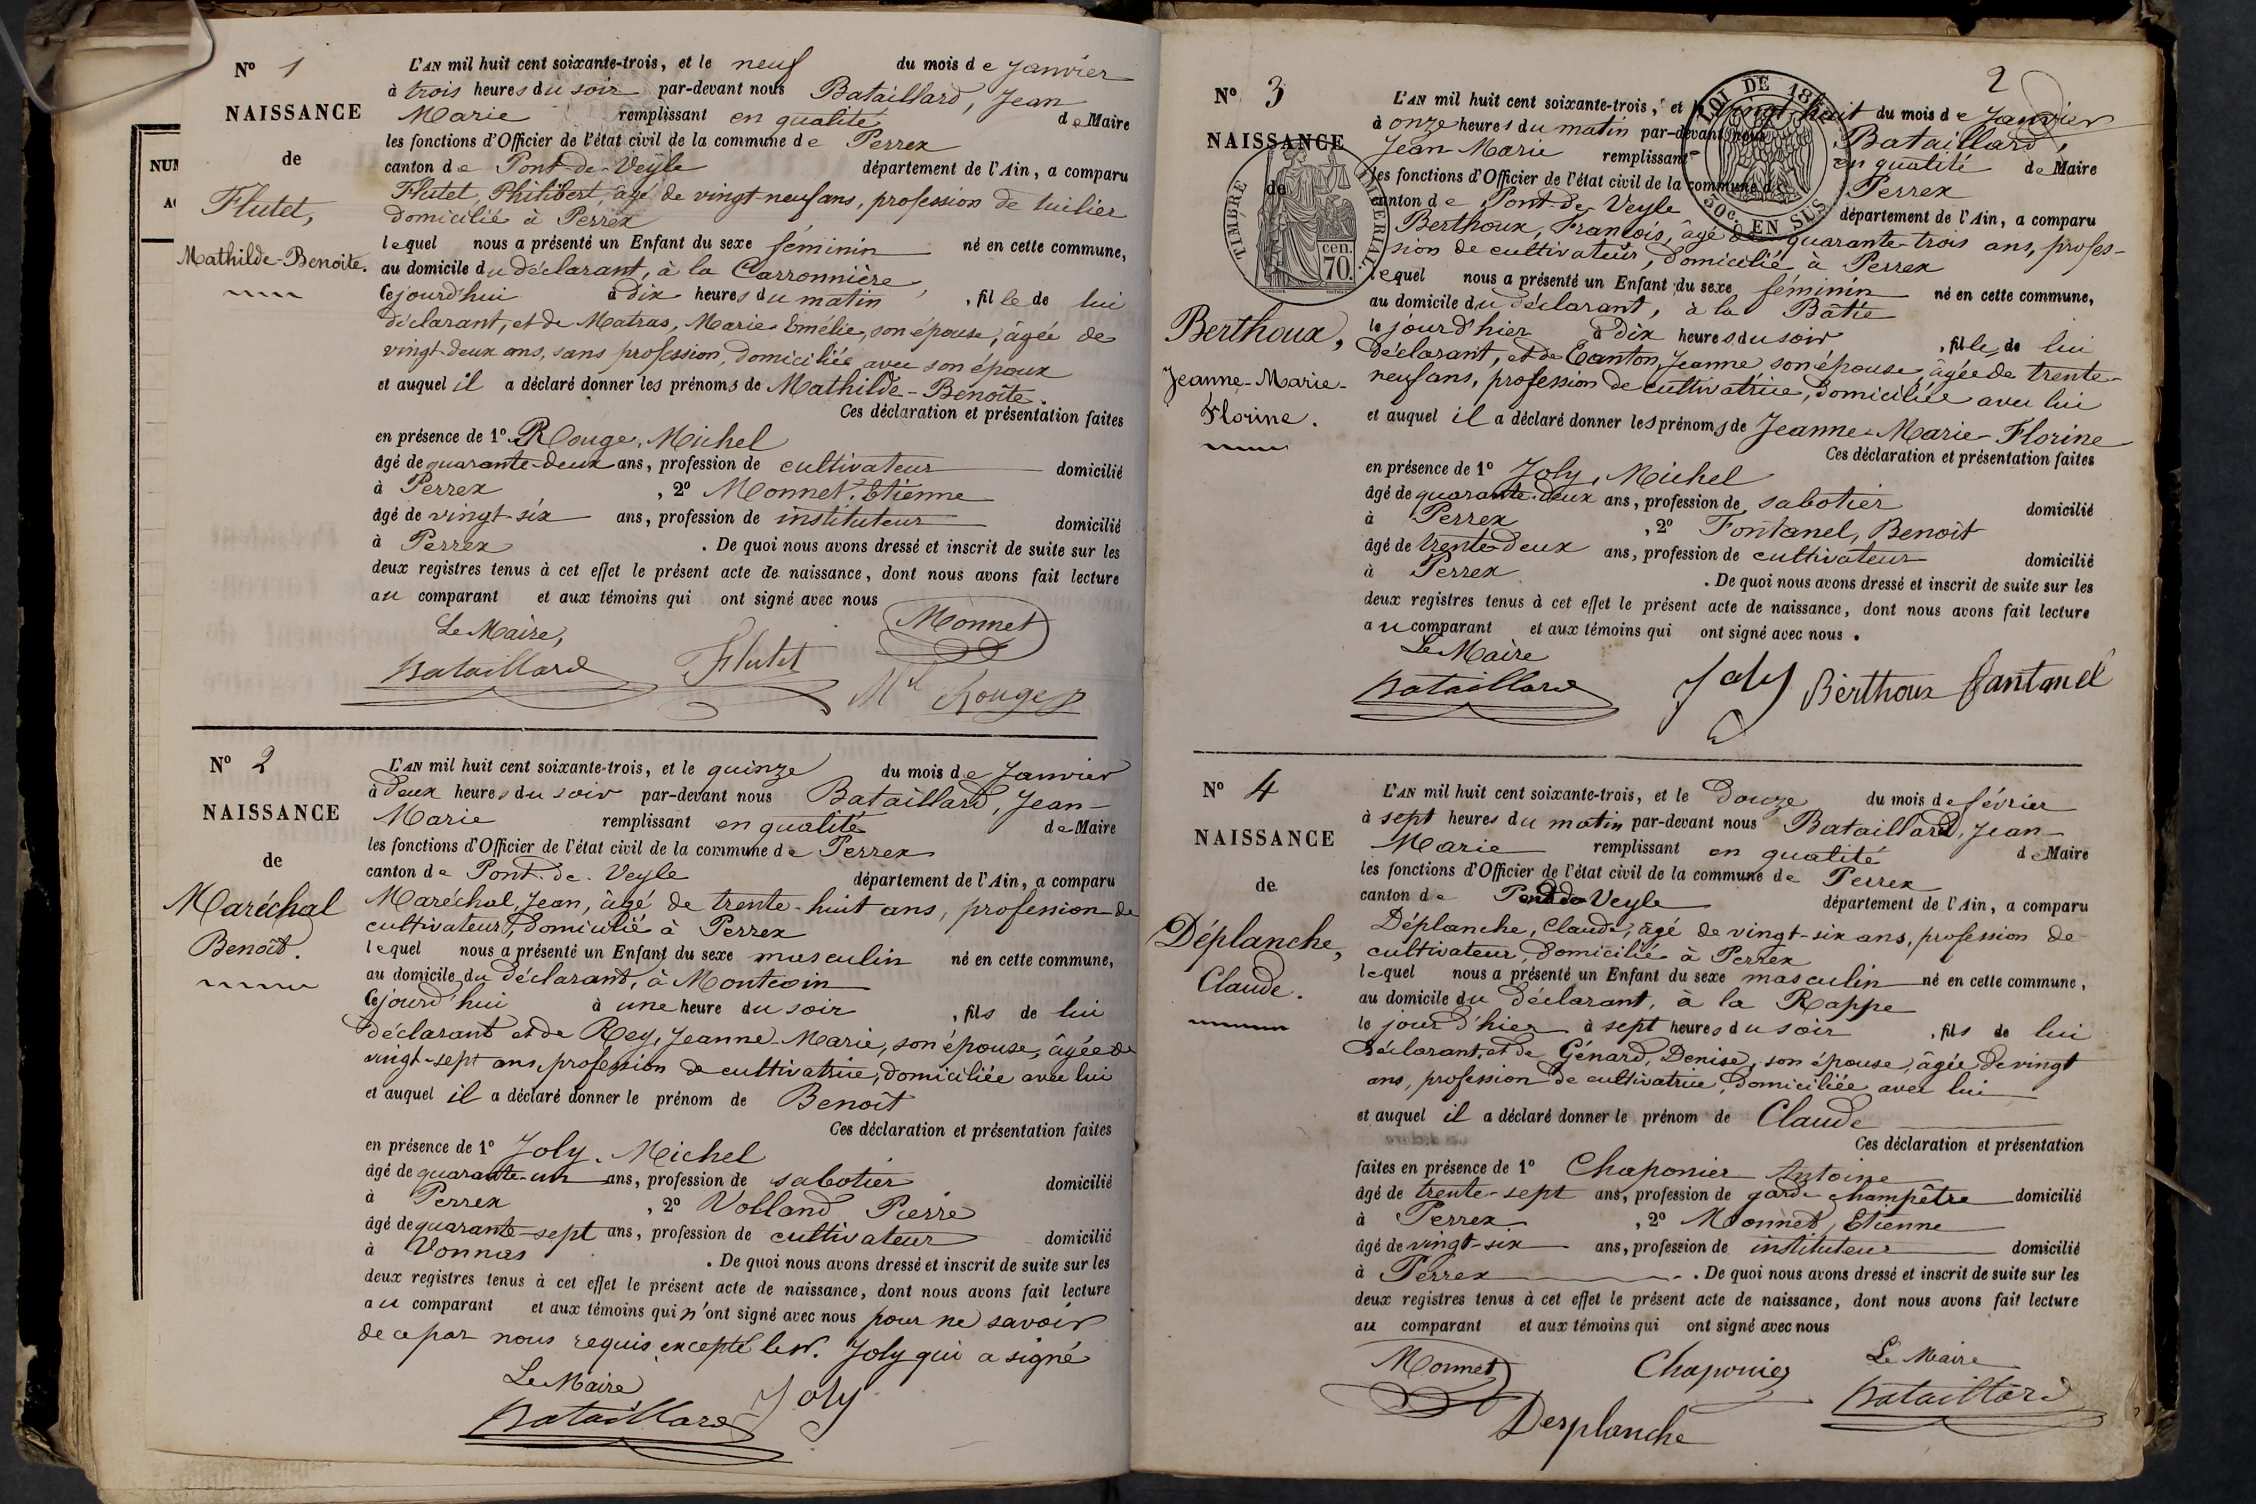 N° 1
NAISSANCE
de
Flutet,
Mathilde-Benoite.
NUM
L'AN mil huit cent soixante-trois, et le neuf du mois de Janvier
à trois heures du soir par-devant nous Bataillard, Jean
Marie remplissant en qualité de Maire
les fonctions d'Officier de l'état civil de la commune de Perrex
canton de Pont-de-Veyle département de l'Ain, a comparu
Flutet, Philibert, âgé de vingt-neuf ans, profession de tuilier
domicilié à Perrex
lequel nous a présenté un Enfant du sexe féminin né en cette commune,
au domicile du déclarant, à la Carronnière
Cejourd'hui à dix heures du matin, fille de lui
déclarant, et de Matras, Marie Emélie, son épouse, âgée de
vingt-deux ans, sans profession, domiciliée avec son époux
et auquel il a déclaré donner les prénoms de Mathilde-Benoîte.
Ces déclaration et présentation faites
en présence de 1° Rouge, Michel
âgé de quarante-deux ans, profession de cultivateur domicilié
à Perrex, 2° Monnet, Etienne
âgé de vingt-six ans, profession de instituteur domicilié
à Perrex. De quoi nous avons dressé et inscrit de suite sur les
deux registres tenus à cet effet le présent acte de naissance, dont nous avons fait lecture
au comparant et aux témoins qui ont signé avec nous
Le Maire,
Monnet
Bataillard Flutet
Mel Rouge
N° 2
NAISSANCE
de
Maréchal
Benoît.
L'AN mil huit cent soixante-trois, et le quinze du mois de Janvier
à deux heures du soir par-devant nous Bataillard, Jean-
Marie remplissant en qualité de Maire
les fonctions d'Officier de l'état civil de la commune de Perrex
canton de Pont-de-Veyle département de l'Ain, a comparu
Maréchal, Jean, âgé de trente-huit ans, profession de
cultivateur, domicilié à Perrex
lequel nous a présenté un Enfant du sexe masculin né en cette commune,
au domicile du déclarant, à Montcoin
Cejourd'hui à une heure du soir, fils de lui
déclarant et de Rey, Jeanne-Marie, son épouse, âgée de
vingt-sept ans, profession de cultivatrice, domiciliée avec lui
et auquel il a déclaré donner le prénom de Benoît
Ces déclaration et présentation faites
en présence de 1° Joly, Michel
âgé de quarante-un ans, profession de sabotier domicilié
à Perrex, 2° Volland Pierre
âgé de quarante-sept ans, profession de cultivateur domicilié
à Vonnas. De quoi nous avons dressé et inscrit de suite sur les
deux registres tenus à cet effet le présent acte de naissance, dont nous avons fait lecture
au comparant et aux témoins qui n'ont signé avec nous pour ne savoir
de ce par nous requis excepté le sr. Joly qui a signé
Le Maire
Bataillard Joly
2
N° 3
NAISSANCE
de
TIMBRE IMPERIAL
cen.
70.
LOI DE 18
50c. EN SUS
Berthoux,
Jeanne-Marie-
Florine.
L'AN mil huit cent soixante-trois, et le vingt-huit du mois de Janvier
à onze heures du matin par-devant nous Bataillard,
Jean-Marie remplissant en qualité de Maire
les fonctions d'Officier de l'état civil de la commune de Perrex
canton de Pont-de-Veyle département de l'Ain, a comparu
Berthoux, François, âgé de quarante-trois ans, profes-
sion de cultivateur, domicilié à Perrex
lequel nous a présenté un Enfant du sexe féminin né en cette commune,
au domicile du déclarant, à la Batie
le jour d'hier à dix heures du soir, fille de lui
déclarant, et de Canton, Jeanne son épouse, âgée de trente-
neuf ans, profession de cultivatrice, domiciliée avec lui
et auquel il a déclaré donner les prénoms de Jeanne-Marie-Florine
Ces déclaration et présentation faites
en présence de 1° Joly, Michel
âgé de quarante-deux ans, profession de sabotier domicilié
à Perrex, 2° Fontanel, Benoît
âgé de trente-deux ans, profession de cultivateur domicilié
à Perrex. De quoi nous avons dressé et inscrit de suite sur les
deux registres tenus à cet effet le présent acte de naissance, dont nous avons fait lecture
au comparant et aux témoins qui ont signé avec nous.
Le Maire
Bataillard Joly Berthoux Fantanel
N° 4
NAISSANCE
de
Déplanche,
Claude.
L'AN mil huit cent soixante-trois, et le douze du mois de février
à sept heures du matin par-devant nous Bataillard, Jean-
Marie remplissant en qualité de Maire
les fonctions d'Officier de l'état civil de la commune de Perrex
canton de Pont de Veyle département de l'Ain, a comparu
Déplanche, Claude, âgé de vingt-six ans, profession de
cultivateur, domicilié à Perrex
lequel nous a présenté un Enfant du sexe masculin né en cette commune,
au domicile du déclarant, à la Rappe
le jour d'hier à sept heures du soir, fils de lui
déclarant, et de Génard, Denise, son épouse, âgée de vingt
ans, profession de cultivatrice, domiciliée avec lui
et auquel il a déclaré donner le prénom de Claude
Ces déclaration et présentation
faites en présence de 1° Chaponier Antoine
âgé de trente-sept ans, profession de garde champêtre domicilié
à Perrex, 2° Monnet, Etienne
âgé de vingt-six ans, profession de instituteur domicilié
à Perrex. De quoi nous avons dressé et inscrit de suite sur les
deux registres tenus à cet effet le présent acte de naissance, dont nous avons fait lecture
au comparant et aux témoins qui ont signé avec nous
Monnet Chaponier Le Maire
Bataillard
Desplanche